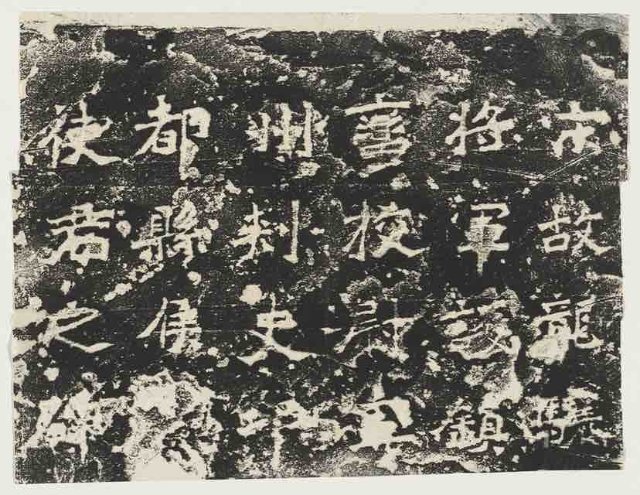 宋故龍驤
將軍護鎮
蠻校尉寧
州刺史邛
都縣侯
使君之碑